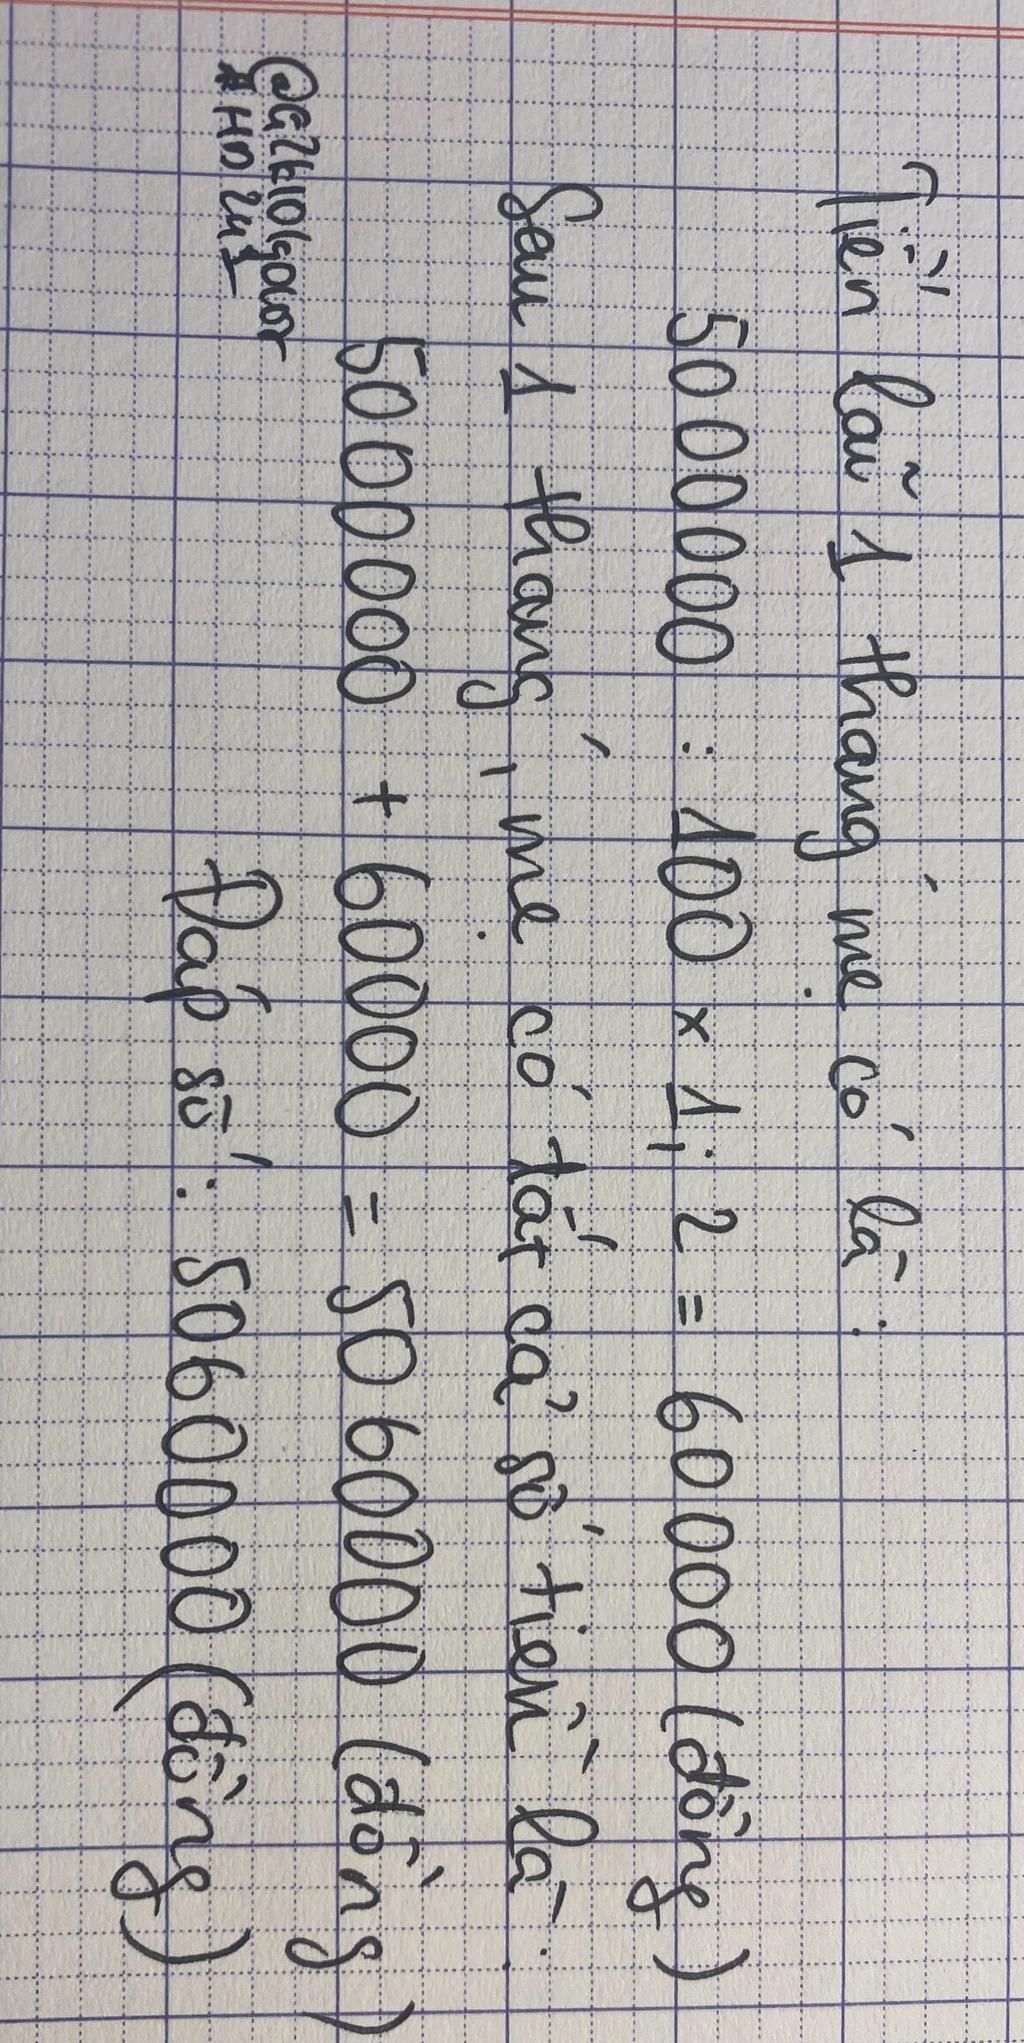 Tiền lãi 1 tháng mẹ có là :
5000000 : 100 × 1,2 = 60000 (đồng)
Sau 1 tháng, mẹ có tất cả số tiền là :
5000000 + 60000 = 5060000 (đồng)
Đáp số : 5060000 (đồng)